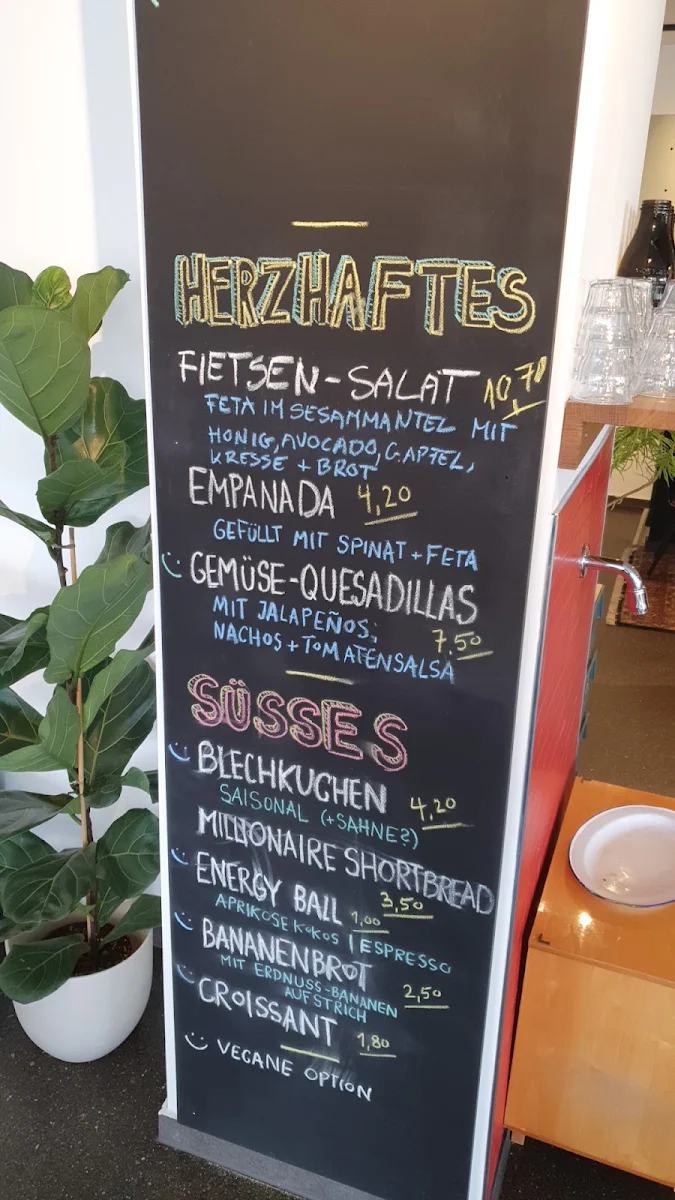 HERZHAFTES
FIETSEN-SALAT 10,70
FETA IM SESAMMANTEL MIT
HONIG, AVOCADO, G. APFEL,
KRESSE + BROT
EMPANADA 4,20
GEFÜLLT MIT SPINAT + FETA
GEMÜSE-QUESADILLAS
MIT JALAPEÑOS,
NACHOS + TOMATENSALSA 7,50
SÜSSES
BLECHKUCHEN 4,20
SAISONAL (+SAHNE?)
MILLIONAIRE SHORTBREAD
3,50
ENERGY BALL 1,00
APRIKOSE KOKOS | ESPRESSO
BANANENBROT
MIT ERDNUSS-BANANEN
AUFSTRICH 2,50
CROISSANT 1,80
VEGANE OPTION